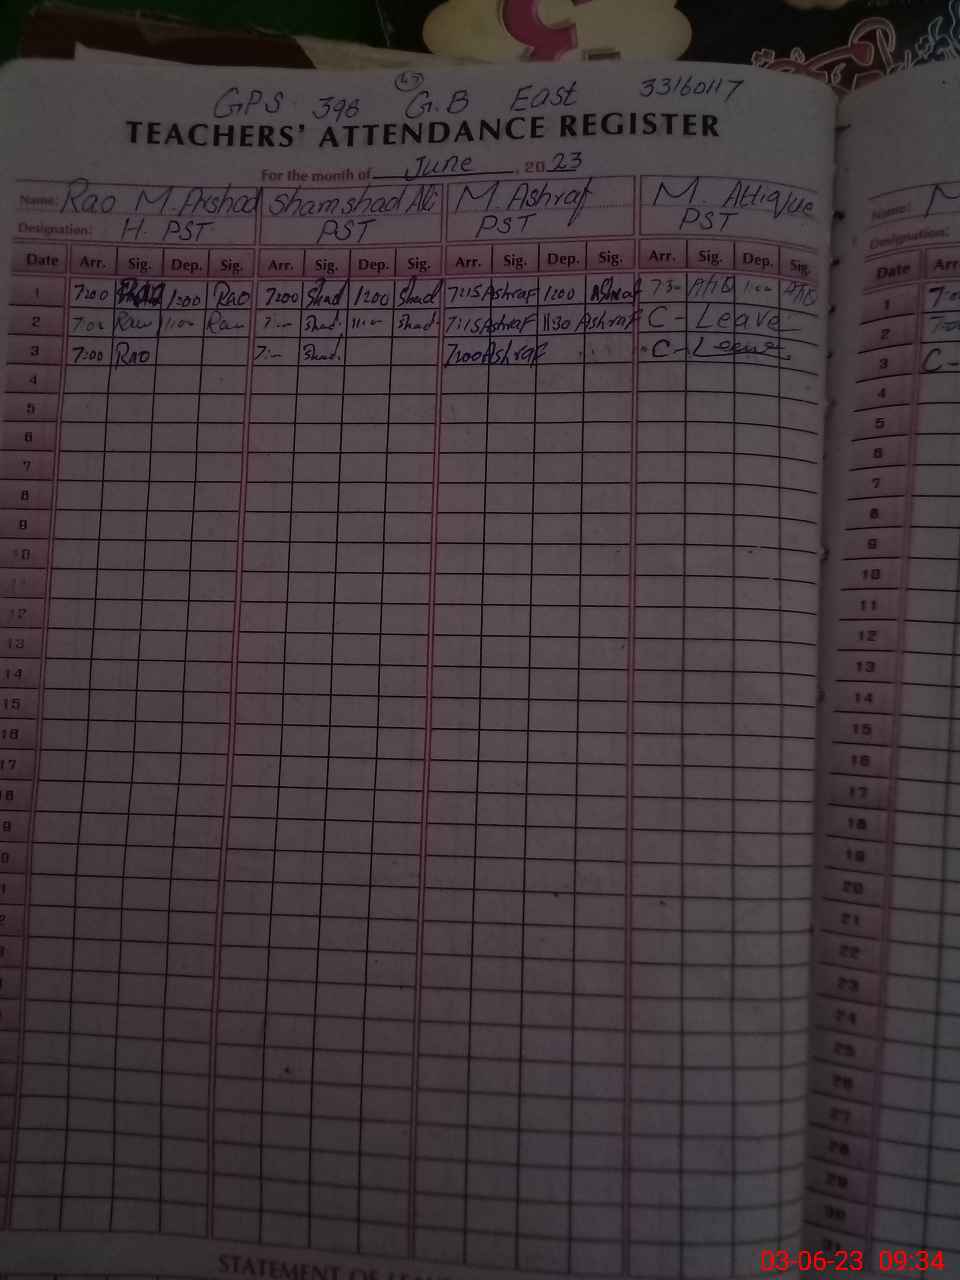 47
GPS 398 G.B East 33160117
TEACHERS' ATTENDANCE REGISTER
For the month of June, 2023
Name: Rao M. Arshad Shamshad Ali M. Ashraf M. Attique
Designation: H. PST PST PST PST
Date Arr. Sig. Dep. Sig. Arr. Sig. Dep. Sig. Arr. Sig. Dep. Sig. Arr. Sig. Dep. Sig.
1 7:00 1:00 Rao 7:00 Shad 1:00 Shad 7:15 Ashraf 1:00 Ashraf 7:30 1:00
2 7:00 Rao 11:00 Rao 7:- Shad. 11:- Shad. 7:15 Ashraf 11:30 Ashraf C-Leave
3 7:00 Rao 7:- Shad. 7:00 Ashraf C-Leave
4
5
6
7
8
9
10
11
12
13
14
15
16
17
Name: M
Designation:
Date Arr
1 7:0
2 7:0
3 C-
4
5
6
7
8
9
10
11
12
13
14
15
16
17
18
19
20
21
22
23
24
25
26
27
28
29
30
31
STATEMENT OF LEA
03-06-23 09:34